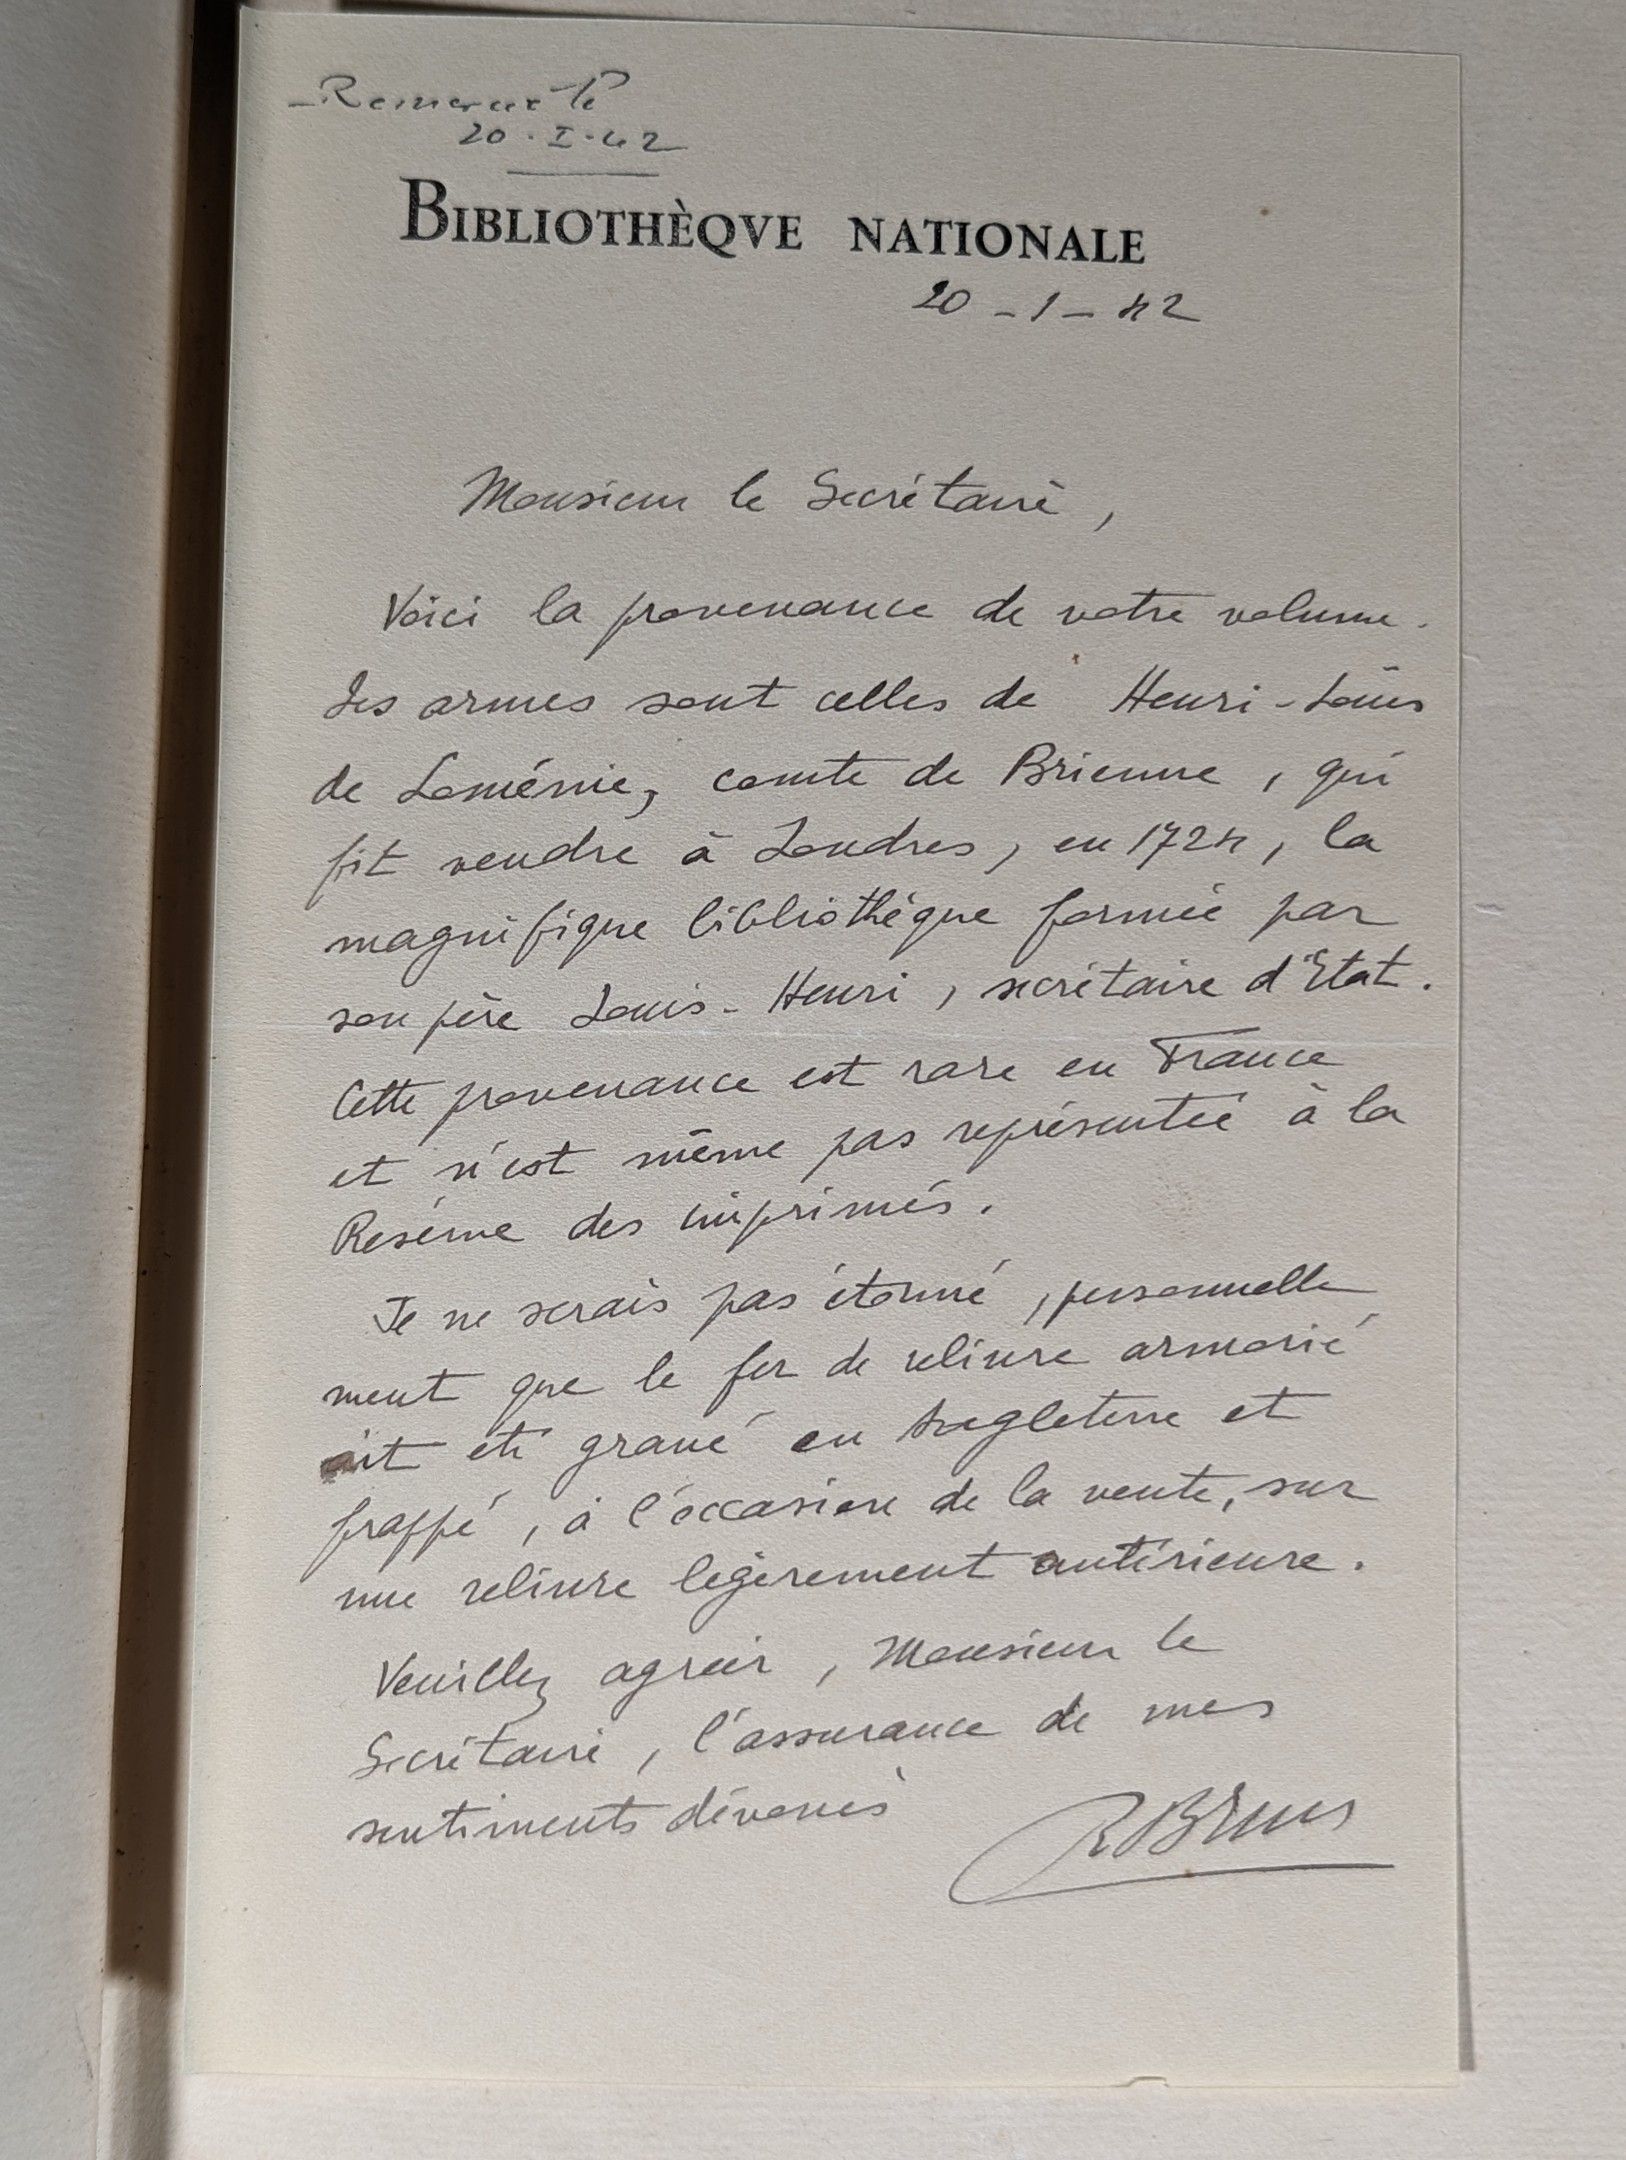 - Remercié le
20 - I - 42
BIBLIOTHÈQVE NATIONALE
20 - 1 - 42
Monsieur le Secrétaire,
Voici la provenance de votre volume.
Les armes sont celles de Henri-Louis
de Loménie, comte de Brienne, qui
fit vendre à Londres, en 1724, la
magnifique bibliothèque formée par
son père Louis-Henri, secrétaire d'Etat.
Cette provenance est rare en France
et n'est même pas représentée à la
Réserve des imprimés.
Je ne serais pas étonné, personnelle
ment que le fer de reliure armorié
ait été gravé en Angleterre et
frappé, à l'occasion de la vente, sur
une reliure légèrement antérieure.
Veuillez agréer, Monsieur le
Secrétaire, l'assurance de mes
sentiments dévoués
R Brun